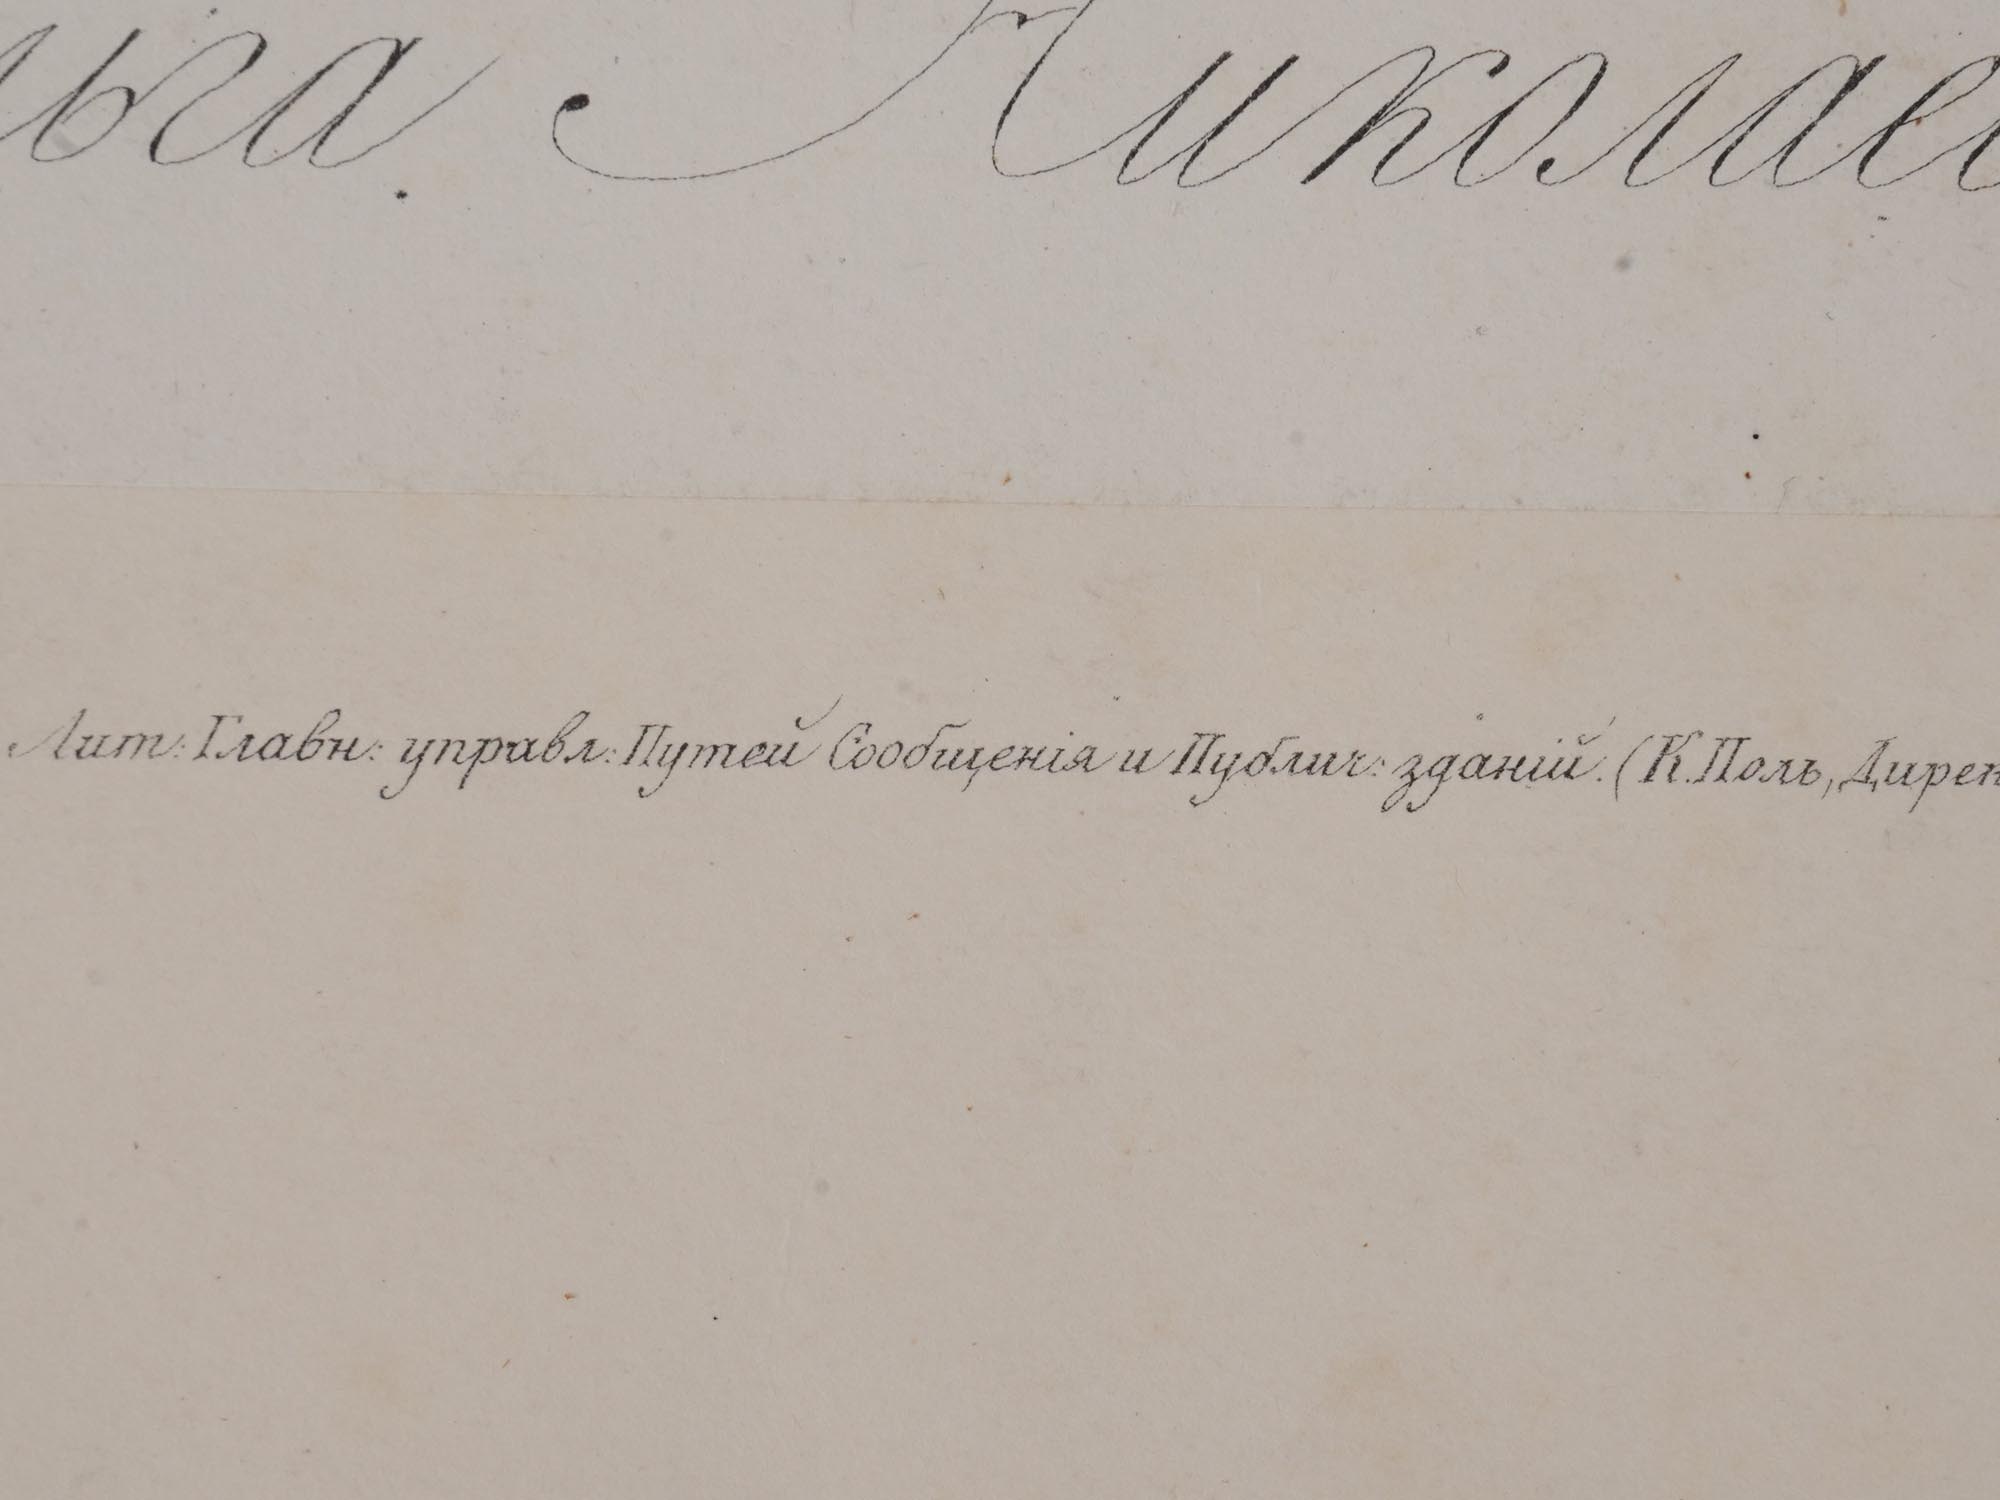 льга Николае
Лит: Главн: управл: Путей Сообщенія и Публич: зданій. (К. Поль, Дирек